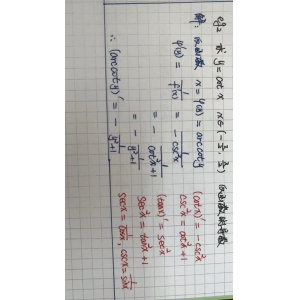 eg2 求 y=cot x x∈(-π/2, π/2) 反函数的导数
解: 反函数 x=φ(y)=arccot y
φ'(y) = 1/f'(x) = -1/csc²x
= -1/(cot²x+1)
= -1/(y²+1)
∴ (arccot y)' = -1/(y²+1)
(cot x)' = -csc²x
csc²x = cot²x+1
(tan x)' = sec²x
sec²x = tan²x+1
sec x = 1/cos x, csc x = 1/sin x